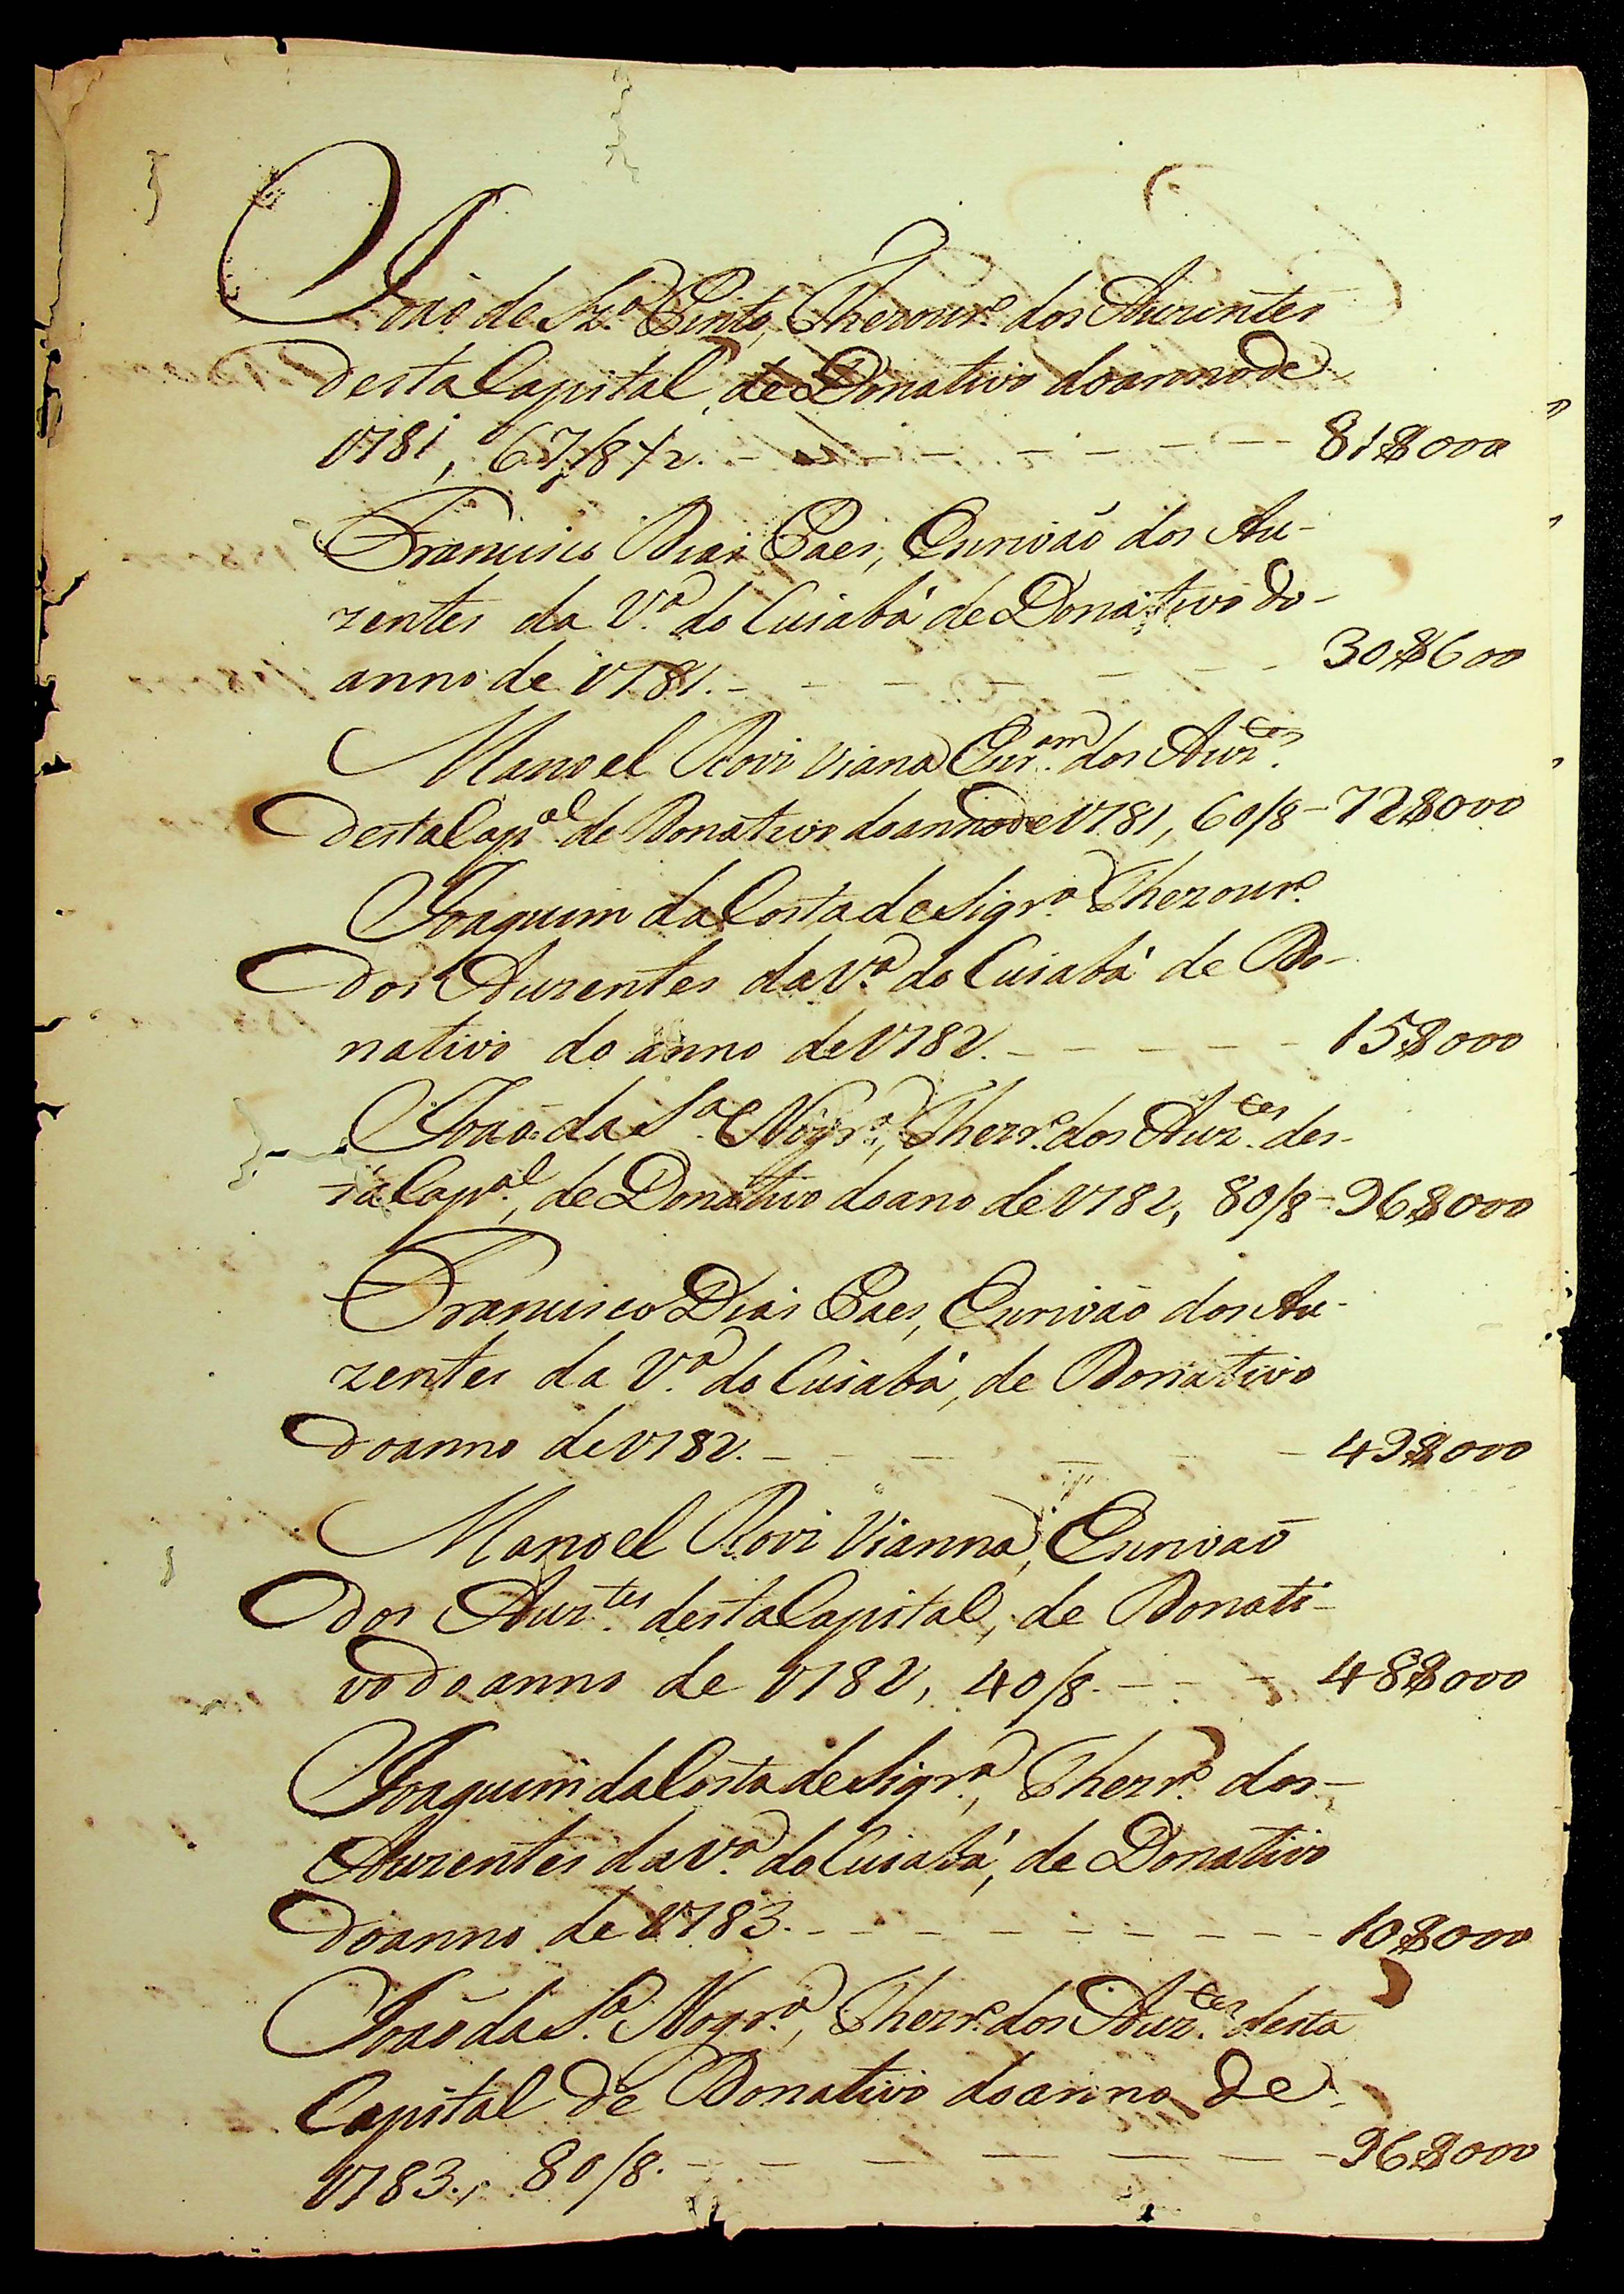 João de Sz.ª Pinto, Thezour.º dos Auzentes
desta Capital, de Donativo do anno de
1781, 67/8 ½. - - - - - - - 81$000
Francisco Dias Paes, Escrivão dos Au-
zentes da V.ª do Cuiabá de Donativo do-
anno de 1781. - - - - - - 30$600
Manoel Roiz Viana Escr.am dos Auz.tes
desta Cap.al de Donativo do anno de 1781, 60/8 - 72$000
Joaquim da Costa de Siqr.ª Thezour.º
dos Auzentes da V.ª do Cuiabá de Do-
nativo do anno de 1782. - - - - - 15$000
João da S.ª Nogr.ª, Thezr.º dos Auz.tes des-
ta Cap.al, de Donativo do ano de 1782, 80/8 - 96$000
Francisco Dias Paes, Escrivão dos Au-
zentes da V.ª do Cuiabá, de Donativo
do anno de 1782. - - - - - - 49$000
Manoel Roiz Vianna, Escrivão
dos Auz.tes desta Capital, de Donati-
vo do anno de 1782, 40/8. - - - 48$000
Joaquim da Costa de Siqr.ª, Thezr.º dos-
Auzentes da V.ª do Cuiabá, de Donativo
do anno de 1783. - - - - - - - - 10$000
João da S.ª Nogr.ª, Thezr.º dos Auz.tes desta
Capital de Donativo do anno de
1783., 80/8. - - - - - - - 96$000